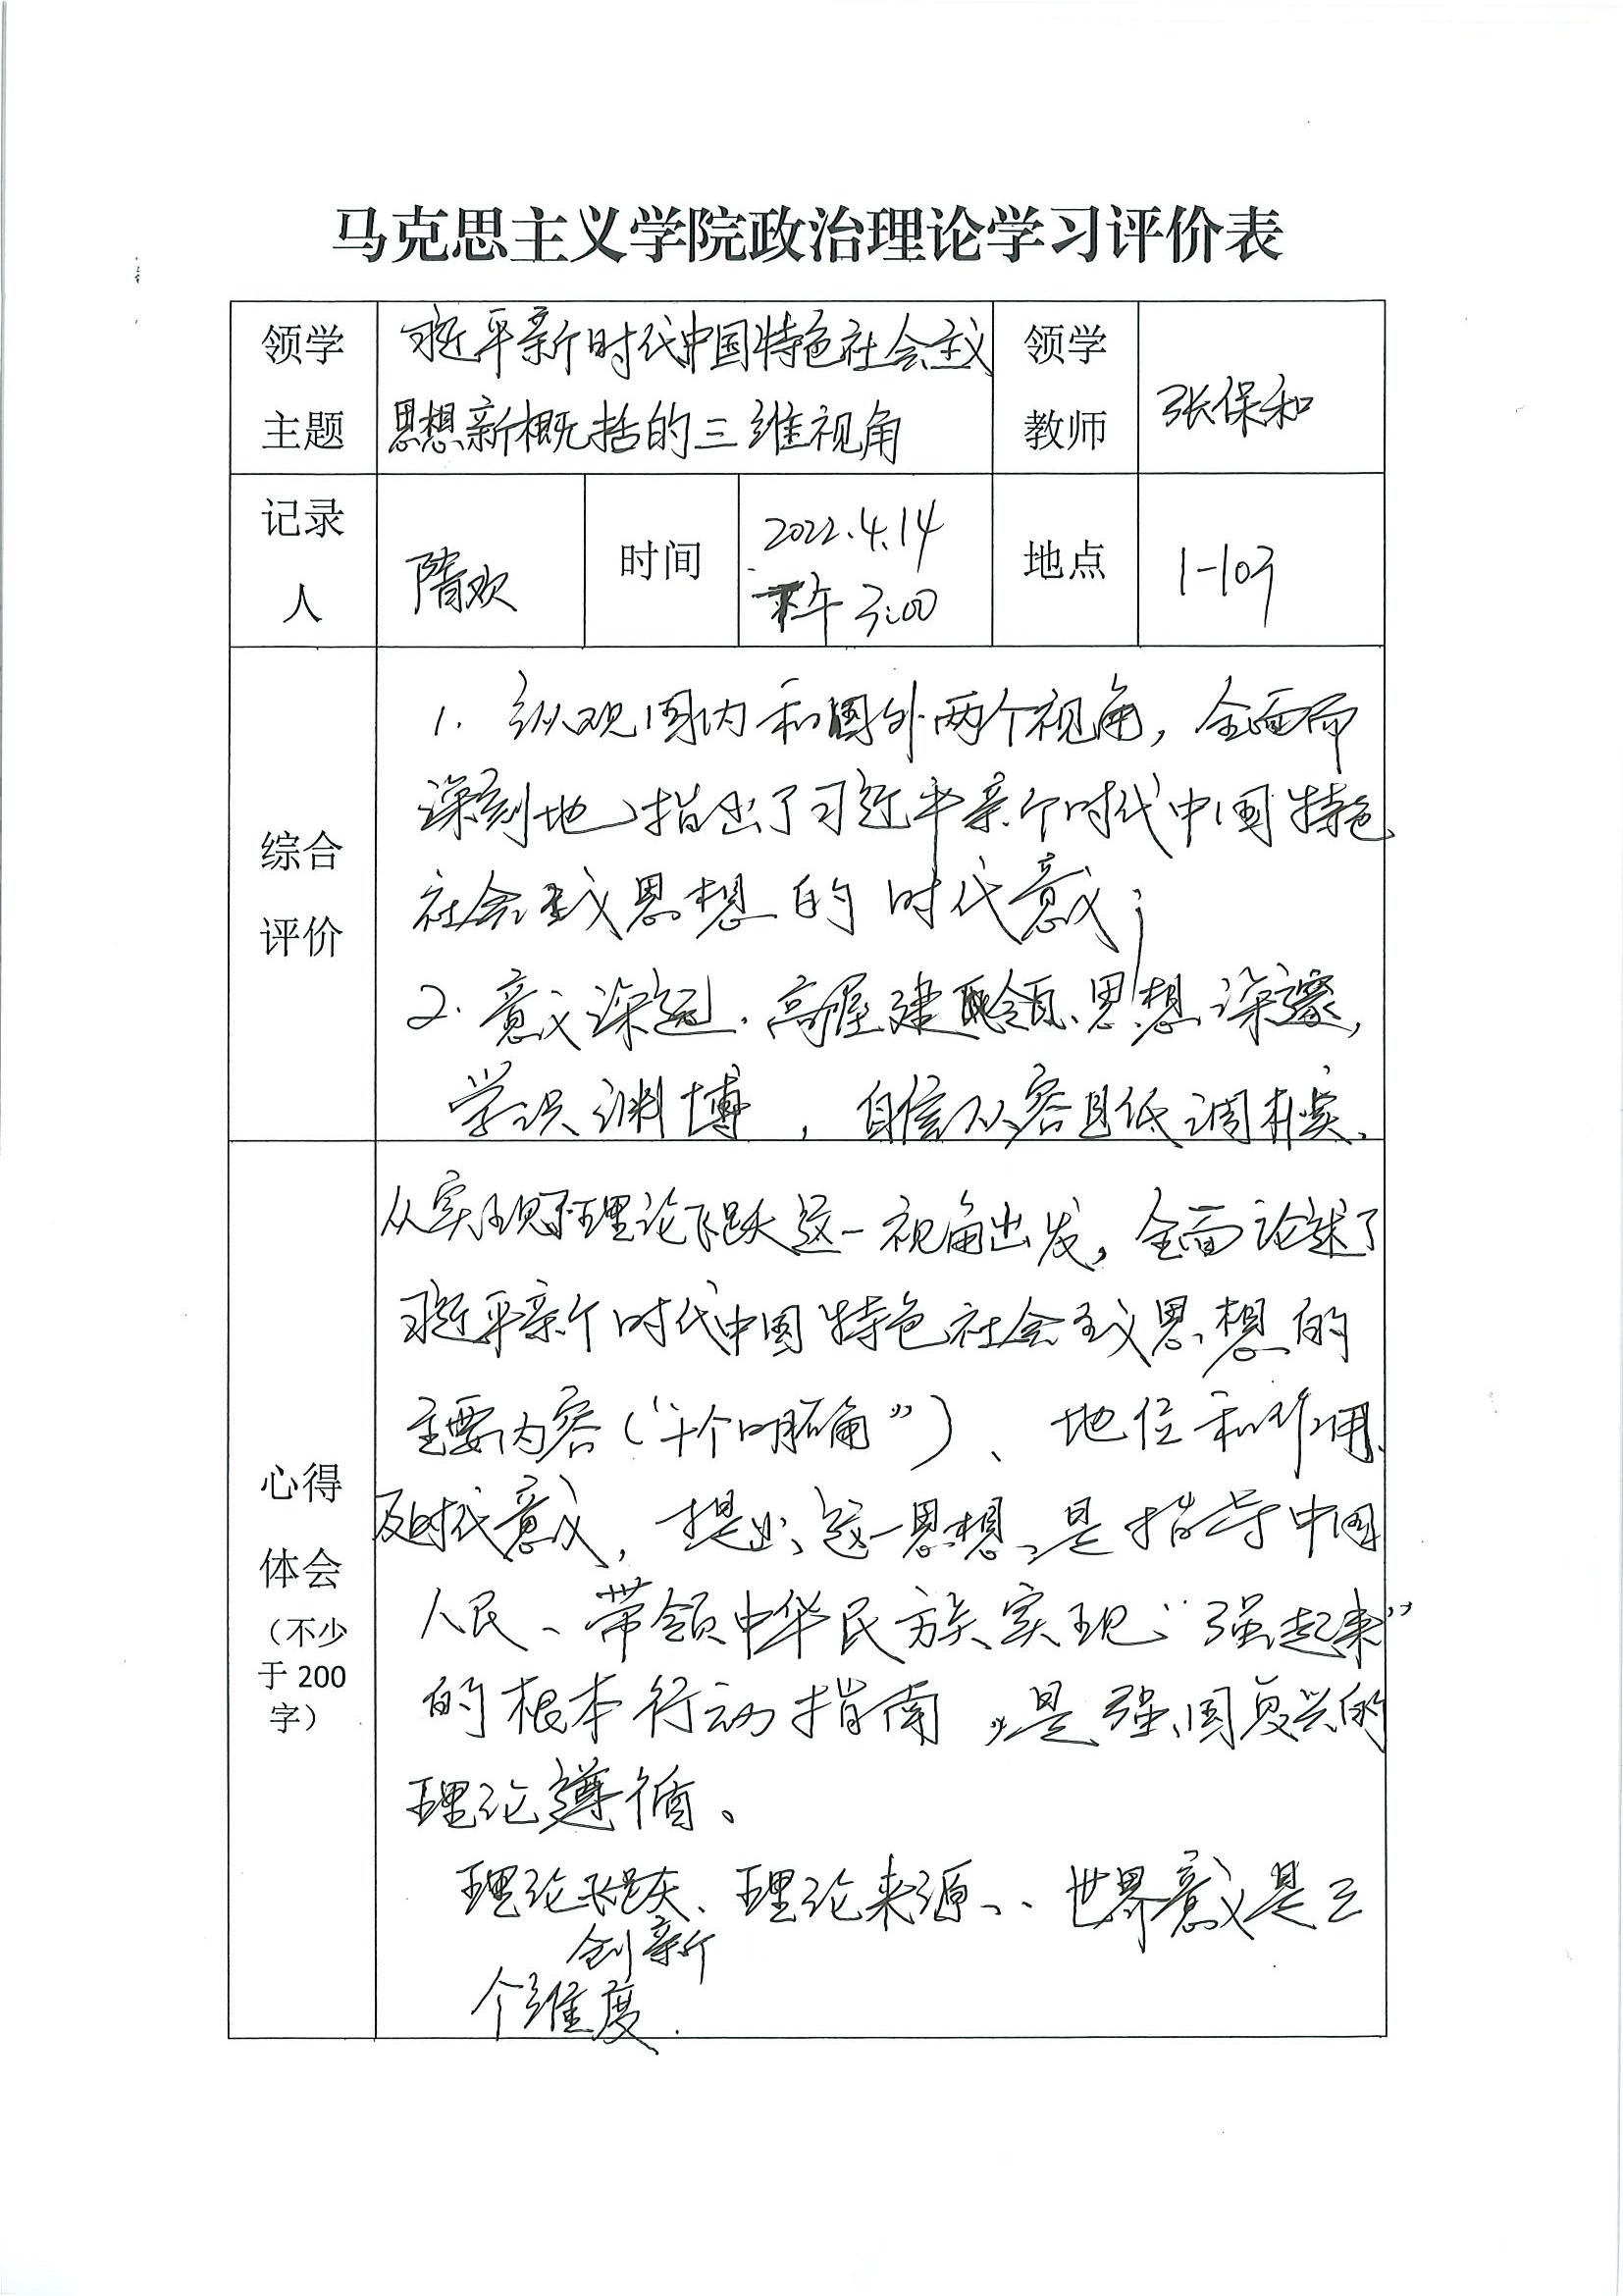 马克思主义学院政治理论学习评价表
领学
主题
习近平新时代中国特色社会主义
思想新概括的三维视角
领学
教师
张保和
记录
人
隋欢
时间
2022.4.14
下午3:00
地点
1-107
综合
评价
1. 纵观国内和国外两个视角,全面而
深刻地指出了习近平新时代中国特色
社会主义思想的时代意义;
2. 意义深远、高屋建瓴、思想深邃,
学识渊博,自信从容且低调朴实.
心得
体会
(不少
于200
字)
从实现了理论飞跃这一视角出发,全面论述了
习近平新时代中国特色社会主义思想的
主要内容(“十个明确”)、地位和作用、
及时代意义,提出、这一思想、是指导中国
人民、带领中华民族实现“强起来”
的根本行动指南,是强国复兴的
理论遵循、
理论飞跃、理论来源、、世界意义是三
创新
个维度.